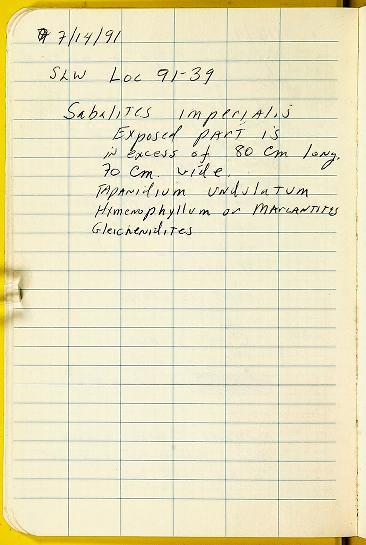 7/14/91
SLW Loc 91-39
Sabalites imperialis
Exposed part is
in excess of 80 cm long.
70 cm. wide.
Tapanidium undulatum
Himenophyllum or Marcantites
Gleichenidites